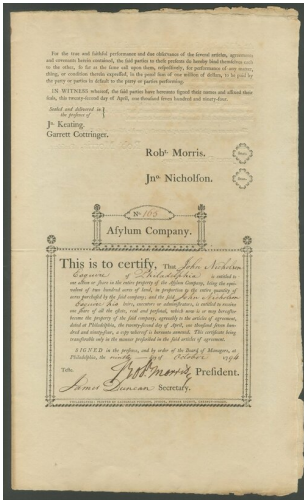 For the true and faithful performance and due observance of the several articles, agreements
and covenants herein contained, the said parties to these presents do hereby bind themselves each
to the other, so far as the same call upon them, respectively, for performance of any matter,
thing, or condition therein expressed, in the penal sum of one million of dollars, to be paid by
the party or parties in default to the party or parties performing.
IN WITNESS whereof, the said parties have hereunto signed their names and affixed their
seals, this twenty-second day of April, one thousand seven hundred and ninety-four.
Sealed and delivered in
the presence of
Jn. Keating.
Garrett Cottringer.
Robt. Morris.
Jno. Nicholson.
No. 165
Asylum Company.
This is to certify, That John Nicholson
Esquire of Philadelphia is entitled to
one action or share in the entire property of the Asylum Company, being the equi-
valent of two hundred acres of land, in proportion to the entire quantity of
acres purchased by the said company; and the said John Nicholson
Esquire his heirs, executors or administrators, is entitled to receive
one share of all the estate, real and personal, which now is or may hereafter
become the property of the said company, agreeably to the articles of agreement,
dated at Philadelphia, the twenty-second day of April, one thousand seven hun-
dred and ninety-four, a copy whereof is hereunto annexed. This certificate being
transferable only in the manner prescribed in the said articles of agreement.
SIGNED in the presence, and by order of the Board of Managers, at
Philadelphia, the day of October 1794
Teste. Rob Morris President.
James Duncan Secretary.